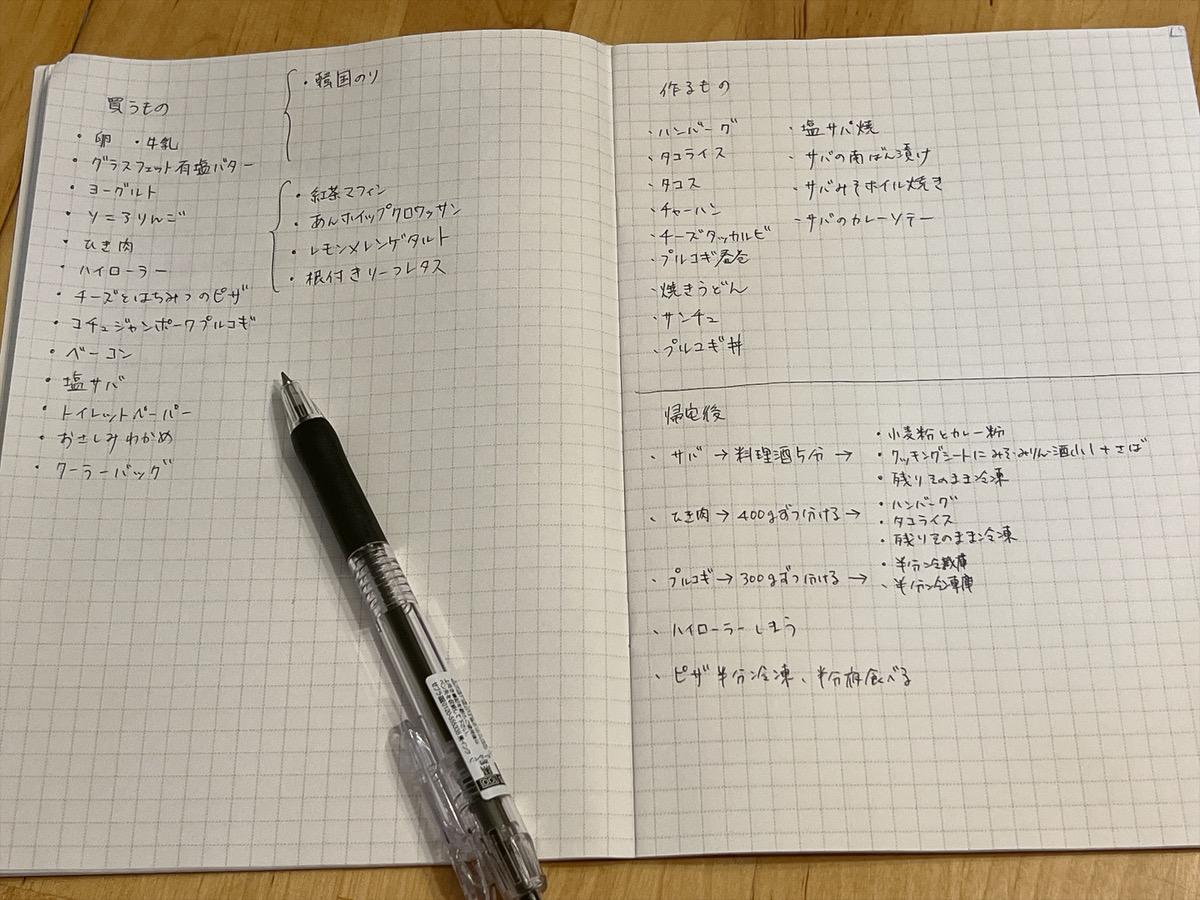 買うもの
・卵 ・牛乳
・グラスフェット有塩バター
・ヨーグルト
・ソニろりんご
・ひき肉
・ハイローラー
・チーズとはちみつのピザ
・コチュジャンポークプルコギ
・ベーコン
・塩サバ
・トイレットペーパー
・おさしみわかめ
・クーラーバッグ
・韓国のり
・紅茶マフィン
・あんホイップクロワッサン
・レモンメレンゲタルト
・根付きリーフレタス
作るもの
・ハンバーグ
・タコライス
・タコス
・チャーハン
・チーズタッカルビ
・プルコギ春巻
・焼きうどん
・サンチュ
・プルコギ丼
・塩サバ焼
・サバの南ばん漬け
・サバみそホイル焼き
・サバのカレーソテー
帰宅後
・サバ→料理酒5分→
・小麦粉とカレー粉
・クッキングシートにみそ・みりん・酒小1+さば
・残りそのまま冷凍
・ひき肉→400gずつ分ける→
・ハンバーグ
・タコライス
・残りそのまま冷凍
・プルコギ→300gずつ分ける→
・半分冷蔵庫
・半分冷凍庫
・ハイローラーしまう
・ピザ半分冷凍、半分夜食べる